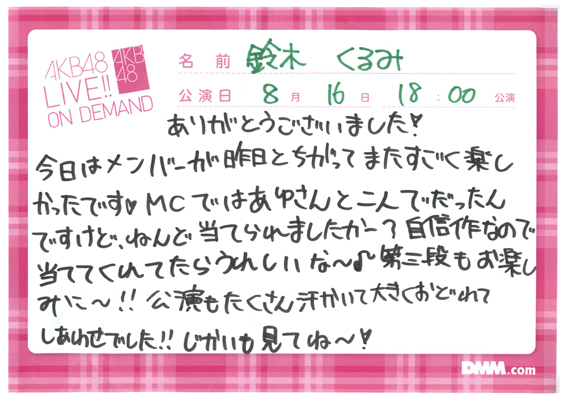 AKB48
LIVE!!
ON DEMAND
AKB
48
名前 鈴木 くるみ
公演日 8月16日 18:00公演
ありがとうございました!
今日はメンバーが昨日とちがってまたすごく楽し
かったです♥MCではあゆさんと二人でだったん
ですけど、ねんど当てられましたかー?自信作なので
当ててくれてたらうれしいな〜♪第三段もお楽し
みに〜!!公演もたくさん汗かいて大きくおどれて
しあわせでした!!じかいも見てね〜!
DMM.com